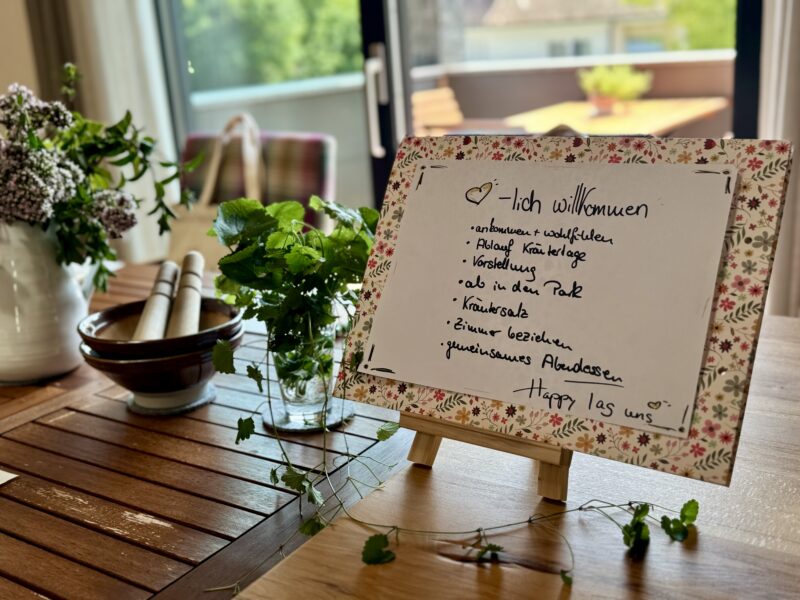 -lich willkommen
• ankommen + wohlfühlen
• Ablauf Kräutertage
• Vorstellung
• ab in den Park
• Kräutersalz
• Zimmer beziehen
• gemeinsames Abendessen
Happy uns